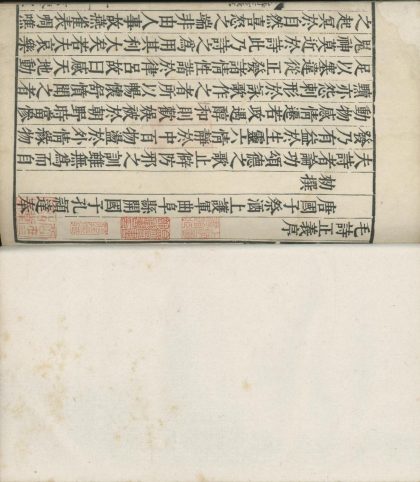 毛詩正義序
唐國子祭酒上護軍曲阜縣開國子孔穎達奉
勅撰
夫詩者論功頌德之歌止僻防邪之訓雖無為而自
發乃有益於生靈六情靜於中百物盪於外情緣物
動物感情遷若政遇醇和則歡娛被於朝野時當慘
黷亦怨刺形於詠歌作之者所以暢懷舒憤聞之者
足以塞違從正發諸情性諧於律呂故曰感天地動
鬼神莫近於詩此乃詩之為用其利大矣若夫哀樂
之起冥於自然喜怒之端非由人事故燕雀表啁噍